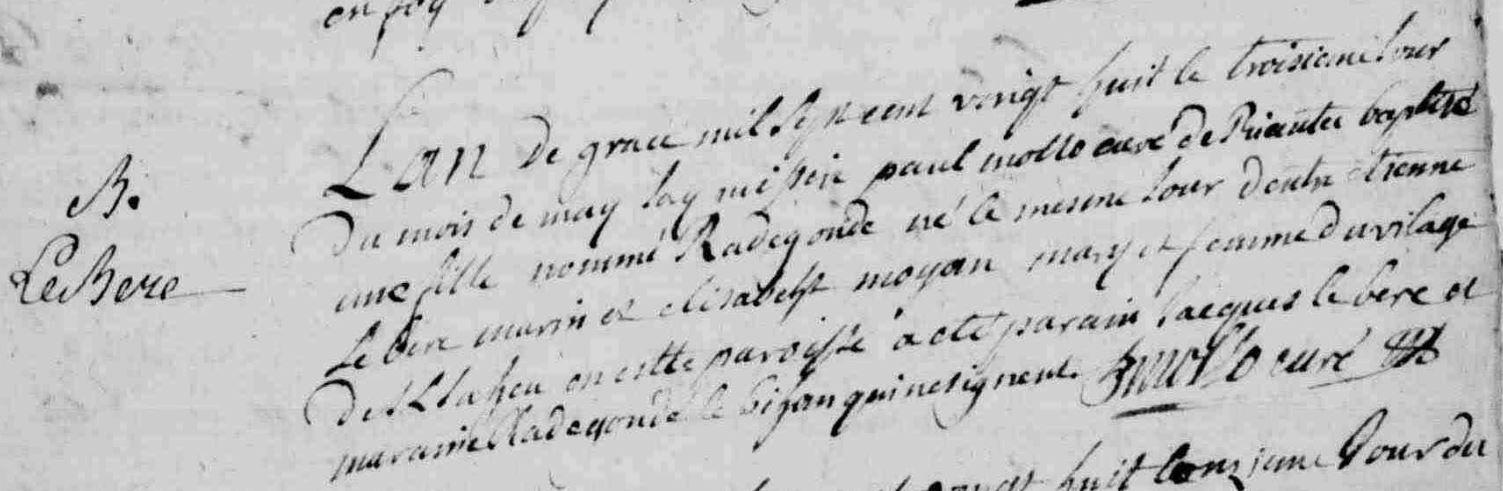 B.
Le Bere
L'an de grace mil sept cent vingt huit le troisieme Jour
du mois de may Iay missire paul mollo curé de Riantec baptisé
une fille nommé Radegonde né le mesme Jour dentre etienne
Le bere marin et elisabeht moyan mary et femme du vilage
de en cette paroisse a eté parain Jacques le bere et
maraine Radegonde le bihan qui ne signent. mollo curé
huit le jour du